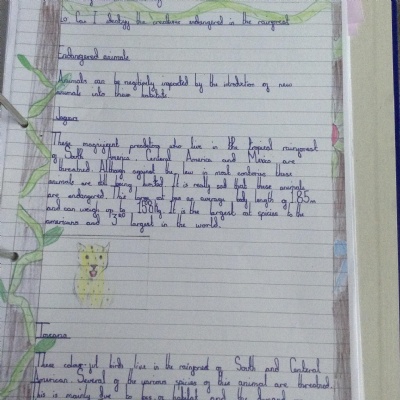 Lo Can I identify the creatures endangered in the rainforest
Endangered animals
Animals can be negitivly impacted by the introdution of new
animals into there habitat.
Jaguar
These magnificent preditors who live in the tropical rainforest
of South America Central America and Mexico are
threatned. Although against the law in most contries these
animals are still being hunted. It is really sad that these animals
are endangered. This large cat has an average body length of 1.85m
and can weigh up to 158kg. It is the largest cat species to the
americans and 3rd largest in the world.
Toucans
These colourful birds live in the rainforest of South and Centeral
American. Several of the various species of this animal are threatned.
this is mainly due to loss of habitat and the demand